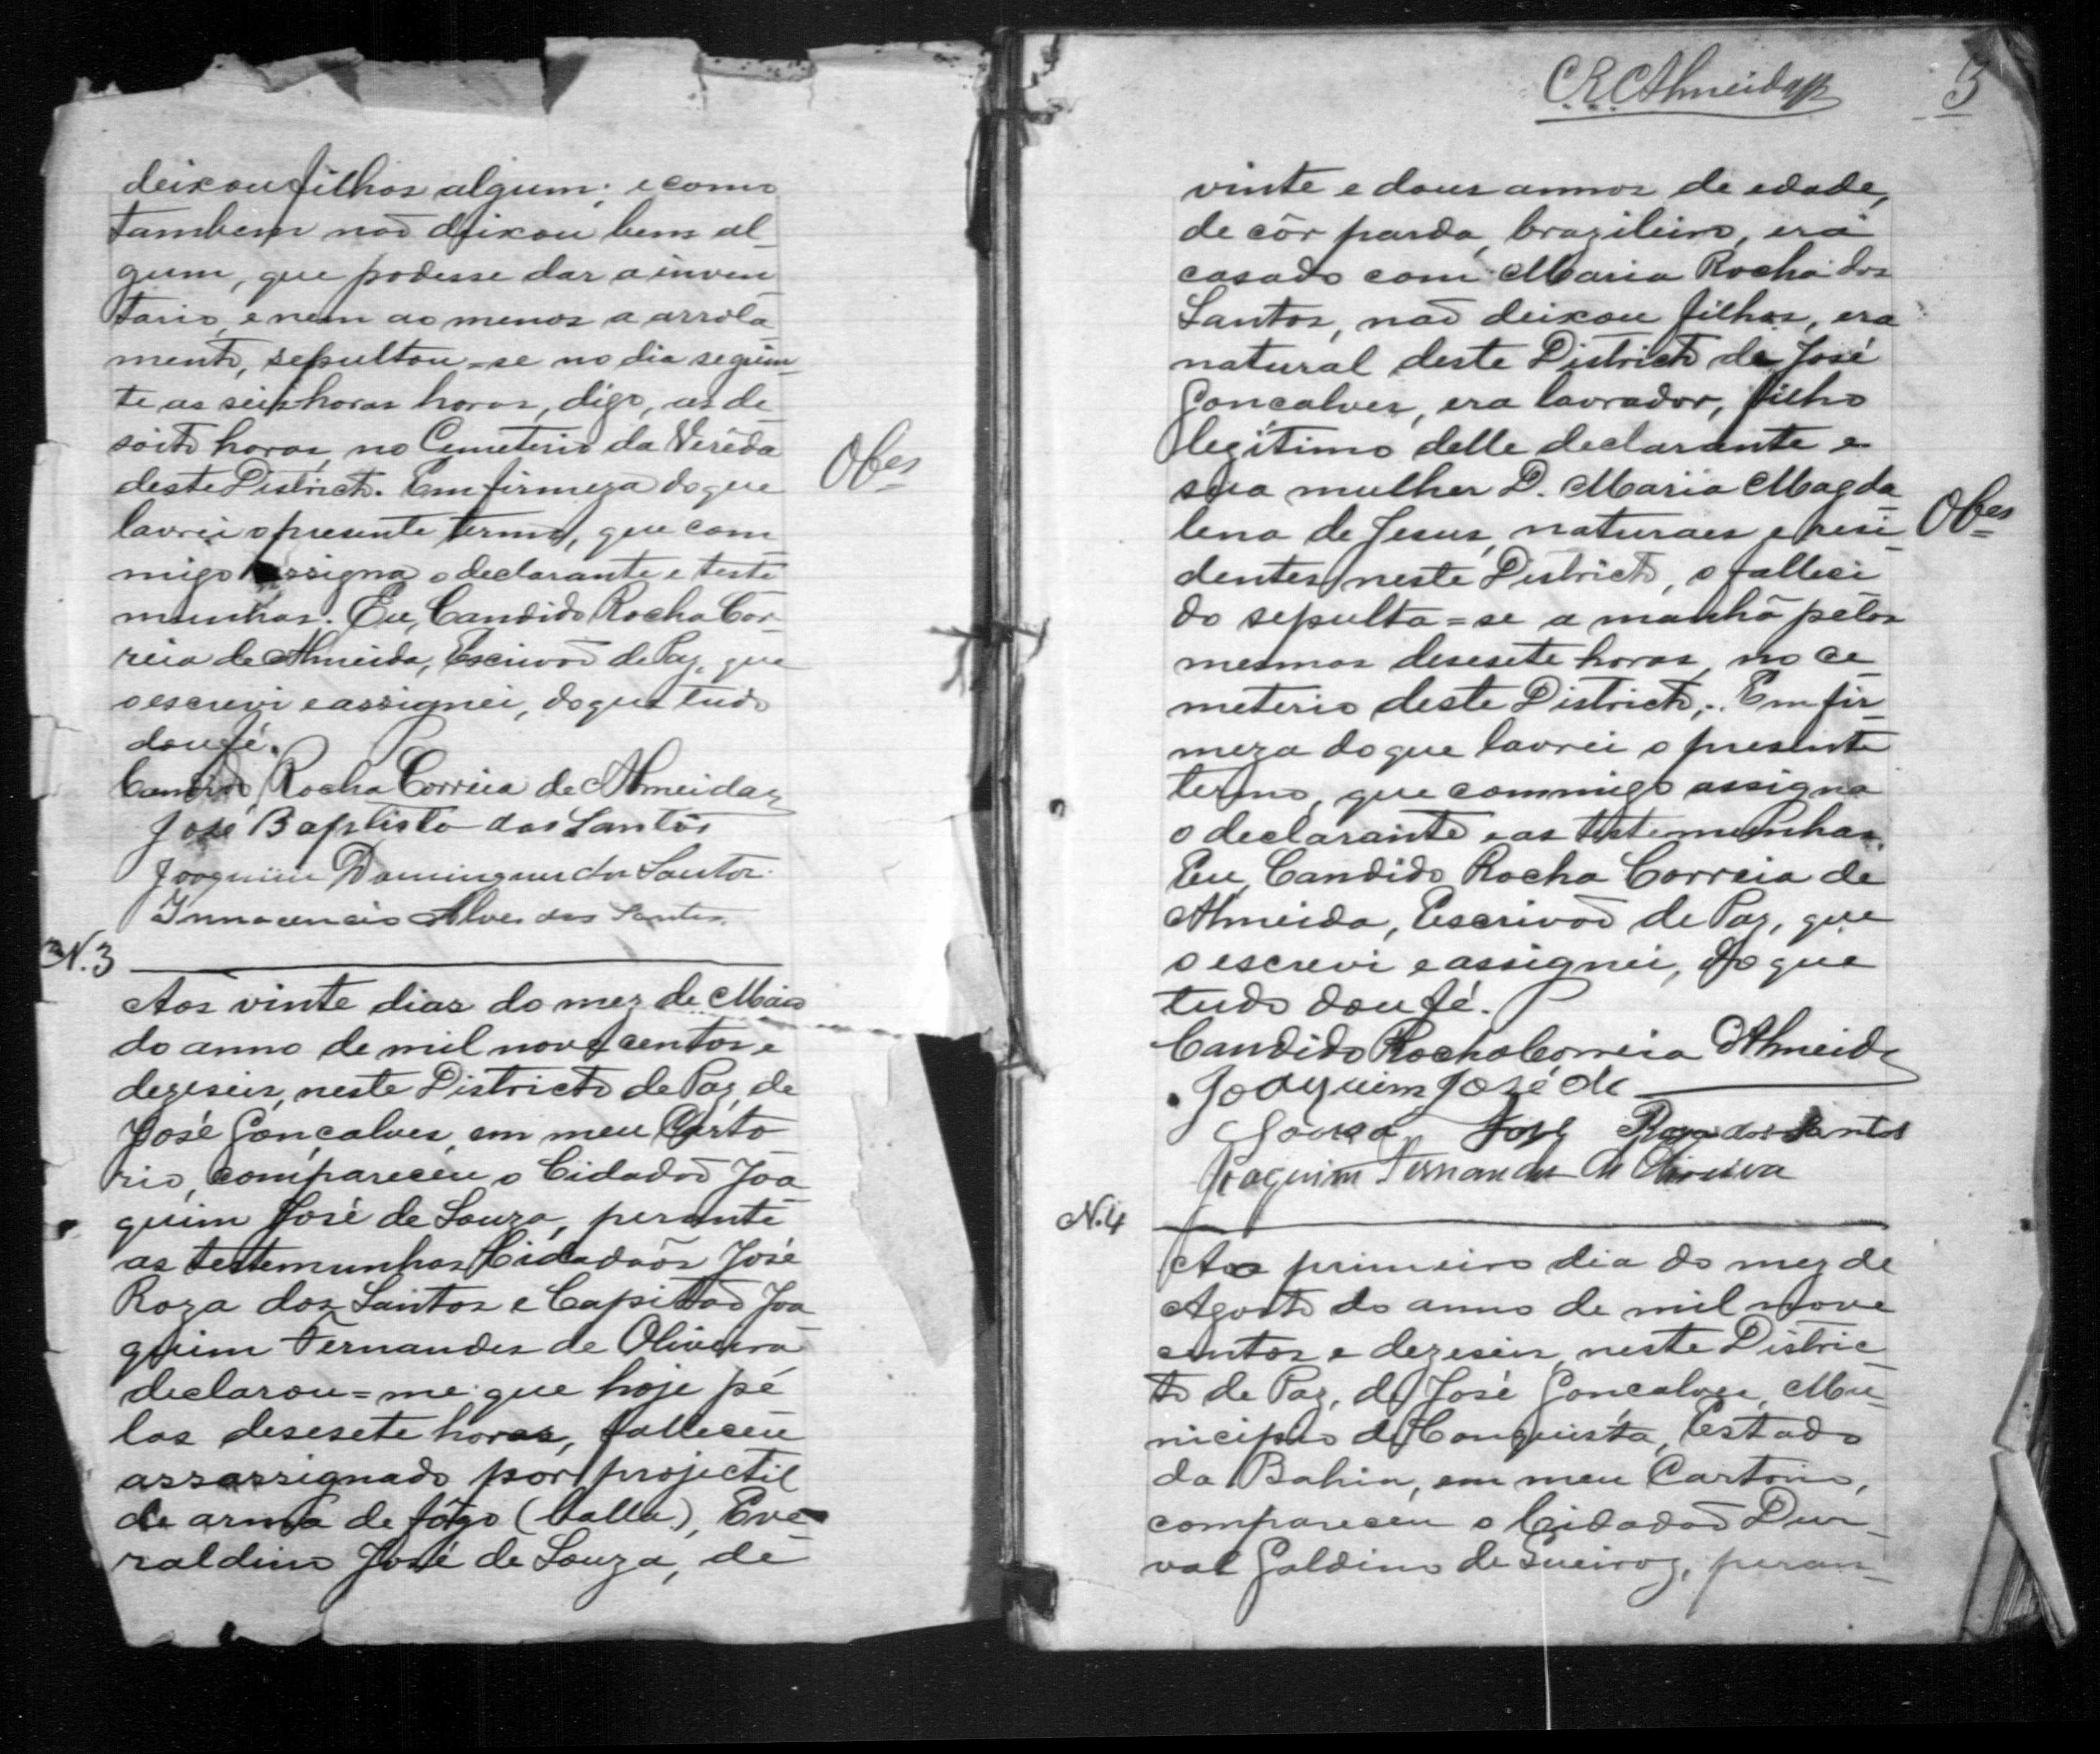 deixou filhos algum; e como
tambem naõ deixou bens al-
gum, que podesse dar a inven
tario, e nem ao menos a arrola
mento, sepultou-se no dia seguin-
te as seis horas horas, digo, as de
soito horas, no Cemeterio da Verêda
deste Districto. Em firmeza do que
lavrei o presente termo, que com
migo assigna o declarante e teste
munhas. Eu, Candido Rocha Cor-
reia de Almeida, Escrivaõ de Paz, que
o escrevi e assignei, do que tudo
dou fé.
Candido Rocha Correia de Almeida
José Baptista dos Santos
Joaquim Domingues dos Santos
Innocencio Alves dos Santos
Obes
N. 3
Aos vinte dias do mez de Maio
do anno de mil nove centos e
dezeseis, neste Districto de Paz, de
José Gonçalves, em meu Carto
rio, compareceu o Cidadaõ Joa
quim José de Souza, perante
as testemunhas Cidadaõs José
Roza dos Santos e Capitaõ Joa
quim Fernandes de Oliveira
declarou=me que hoje pe
las desesete horas, falleceu
assassignado por projectil
de arma de fôgo (balla), Eve-
raldino José de Souza, de
C.R.C.Almeida
3
vinte e dous annos de edade,
de côr parda, brazileiro, era
casado com Maria Rocha dos
Santos, naõ deixou filhos, era
natural deste Districto de José
Gonçalves, era lavrador, filho
legitimo delle declarante e
sua mulher D. Maria Magda
lena de Jesus, naturaes e resi-
dentes neste Districto, o falleci
do sepulta=se a manhã pelas
mesmas desesete horas, no ce
meterio deste Districto. Em fir-
meza do que lavrei o presente
termo, que commigo assigna
o declarante e as testemunhas.
Eu, Candido Rocha Correia de
Almeida, Escrivaõ de Paz, que
o escrevi e assignei, do que
tudo dou fé.
Candido Rocha Correia d'Almeida
Joaquim José de
Souza José Roza dos Santos
Joaquim Fernandes de Oliveira
Obes
N. 4
Aos primeiro dia do mez de
Agosto do anno de mil nove
centos e dezeseis, neste Distric
to de Paz, de José Gonçalves, Mu-
nicipio de Conquista, Estado
da Bahia, em meu Cartorio,
compareceu o Cidadaõ Dur-
val Galdino de Queiroz, peran-